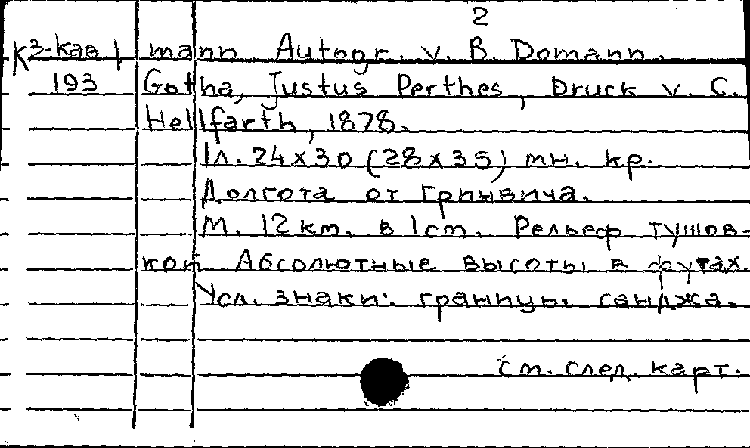 2
К3-Кав 1 mann. Autogr. v. B. Domann.
193 Gotha, Justus Perthes, Druck v. C.
Hellfarth, 1878.
1л. 24х30 (28х35) мн. кр.
Долгота от Гринвича.
М. 12км. в 1см. Рельеф тушов-
кой Абсолютные высоты в футах
Усл. знаки: границы санджа.
см. след. карт.